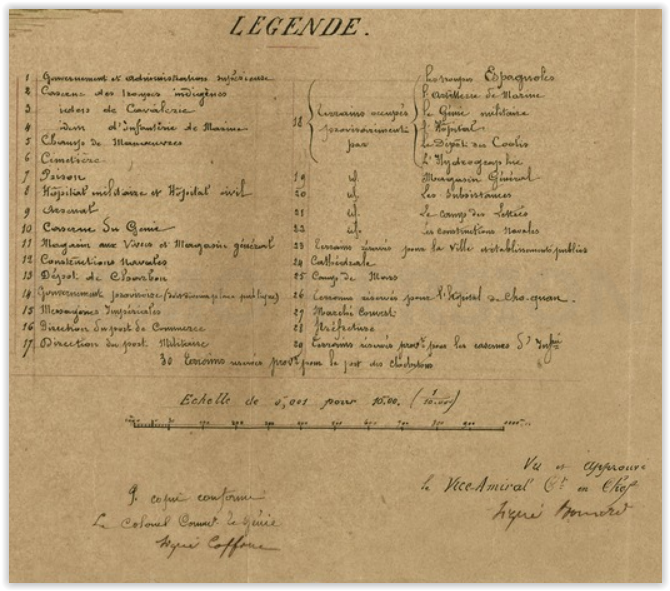 LÉGENDE.
1 Gouvernement et administration supérieure
2 Caserne des troupes indigènes
3 idem de Cavalerie
4 idem d'Infanterie de Marine
5 Champ de Manœuvres
6 Cimetière
7 Prison
8 Hôpital militaire et Hôpital civil
9 Arsenal
10 Caserne du Génie
11 Magasin aux Vivres et Magasin général
12 Constructions navales
13 Dépôt de Charbon
14 Gouvernement provisoire
15 Messageries Impériales
16 Direction du port de Commerce
17 Direction du port Militaire
18 Terrains occupés provisoirement par
les troupes Espagnoles
l'Artillerie de Marine
le Génie militaire
l'Hôpital
le Dépôt des Coolis
L'Hydrographie
19 id. Magasin Général
20 id. Les Subsistances
21 id. Le camp des Lettrés
22 id. Les constructions Navales
23 Terrains réservés pour la Ville et établissements publics
24 Cathédrale
25 Camp de Mars
26 Terrains réservés pour l'Hôpital de Cho-quan.
27 Marché Couvert
28 Préfecture
29 Terrains réservés prov.t pour les casernes d'Inf.ie
30 Terrains réservés prov.t pour le port des
Echelle de 0,001 pour 10.00. (1/10.000)
Vu et approuvé
le Vice-Amiral C.t en Chef
Signé Bonard
P. copie conforme
Le Colonel Comm.t le Génie
Signé